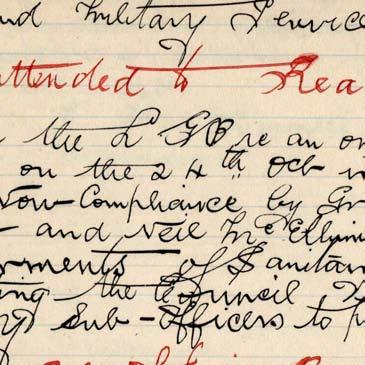 nd Military Service
attended to Rea
the L G B re an or
on the 24th Octr
Non-Compliance by Gr
and Neil McElhin
erments of Sanitar
ing the Council
y Sub-Officers to p